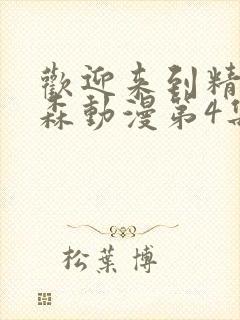 歡迎来到精
森動漫第4集
松葉博